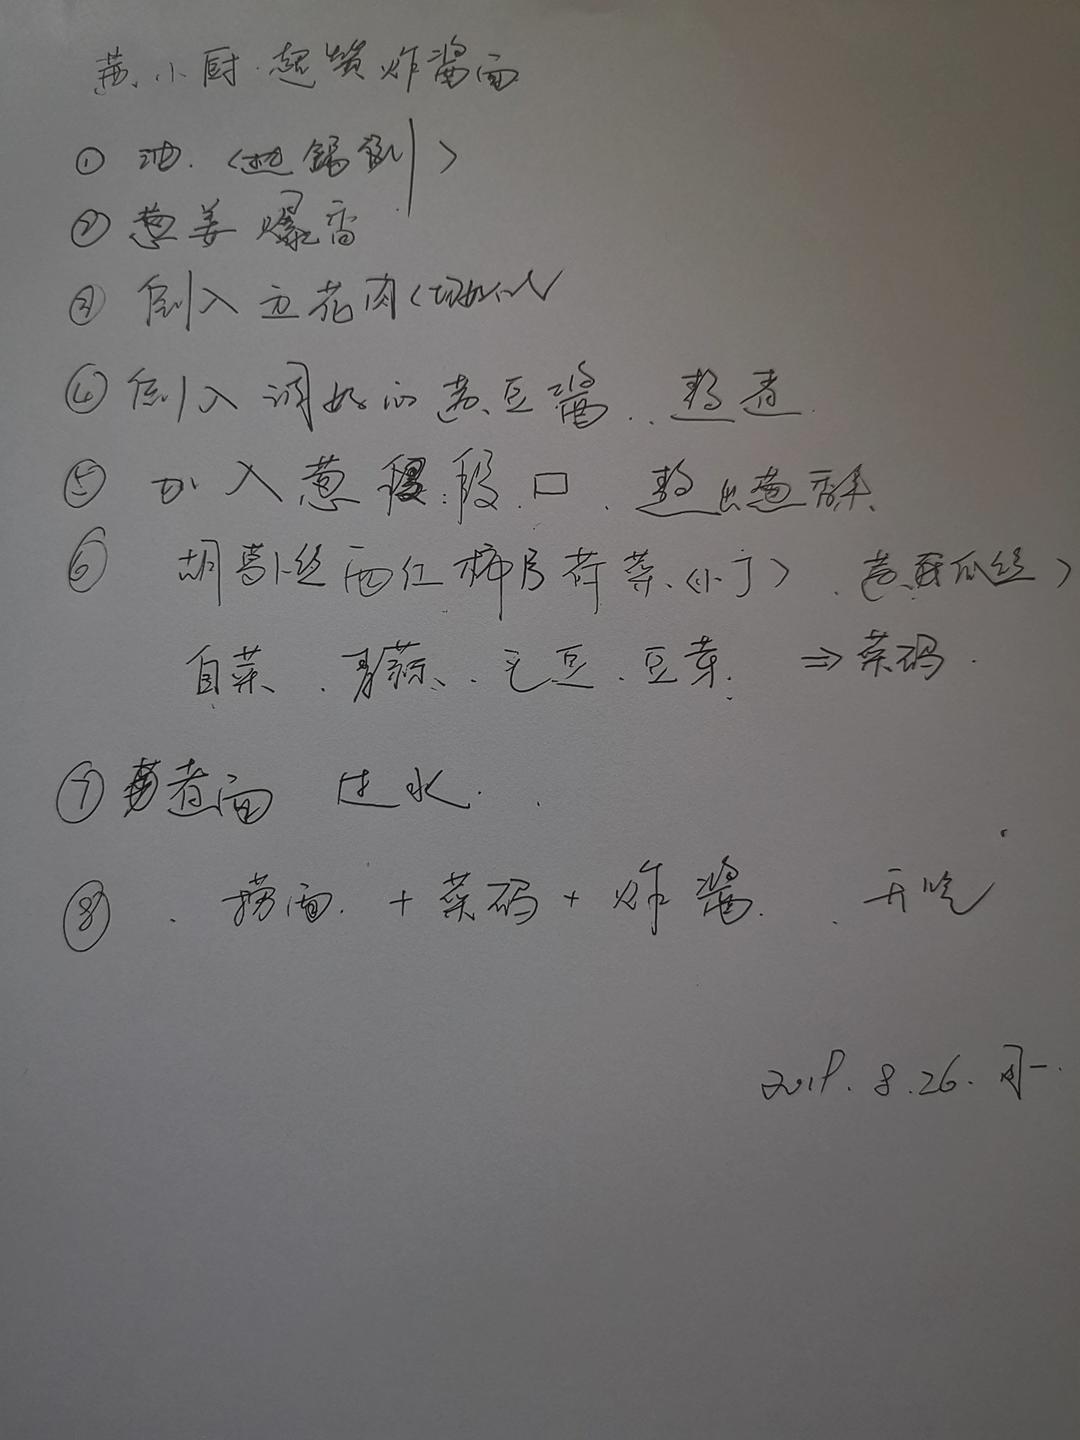 黄小厨·超赞炸酱面
① 油.(热锅倒)
② 葱姜爆香
③ 倒入五花肉(切好的
④ 倒入调好的黄豆酱..熬煮.
⑤ 加入葱段.口.熬出葱香
⑥ 胡萝卜丝西红柿 菜(小丁).黄瓜丝)
白菜.青蒜.毛豆.豆芽. ⇒菜码.
⑦ 煮面 过水..
⑧ .捞面.+菜码+炸酱..开吃
2019.8.26.周一.